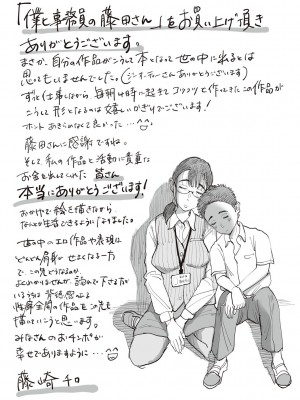 「僕と事務員の藤田さん」をお買い上げ頂き
ありがとうございます。
まさか、自分の作品がこうして本となって世の中に出るとは
思ってもいませんでした。(シンイーティーさんありがとうございます)
ずっと仕事しながら毎朝4時に起きてコツコツと作ってきたこの作品が
こうして形となるのは嬉しいかぎりでございます!
ホント あきらめなくて良かった…
藤田さんに感謝ですね。
そして私の作品と活動に貴重な
お金を出してくれた 皆さん
本当にありがとうございます!
おかげで絵を描きながら
なんとか生活できるようになりました。
世の中のエロ作品や表現は
どんどん肩身がせまくなる一方
で、この先どうなるのか
よくわかりませんが、認めて下さる方が
いるうちは 背徳感
性癖全開の作品をこの先も
描いていこうと思います。
みなさんのおチンポが
幸せでありますように…
藤崎チロ